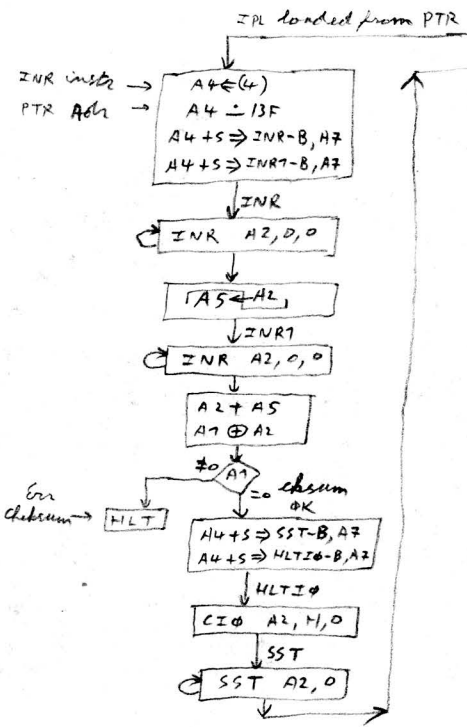 IPL loaded from PTR
INR instr → A4 ⇐ (4)
PTR Adr → A4 ∸ 13F
A4 + S ⇒ INR-B, A7
A4 + S ⇒ INR1-B, A7
INR
INR A2, 0, 0
A5 ← A2
INR1
INR A2, 0, 0
A2 + A5
A1 ⊕ A2
≠0 A1
=0 cksum
ΦK
Err
Cheksum → HLT
A4 + S ⇒ SST-B, A7
A4 + S ⇒ HLTIΦ-B, A7
HLTIΦ
CIΦ A2, H, 0
SST
SST A2, 0